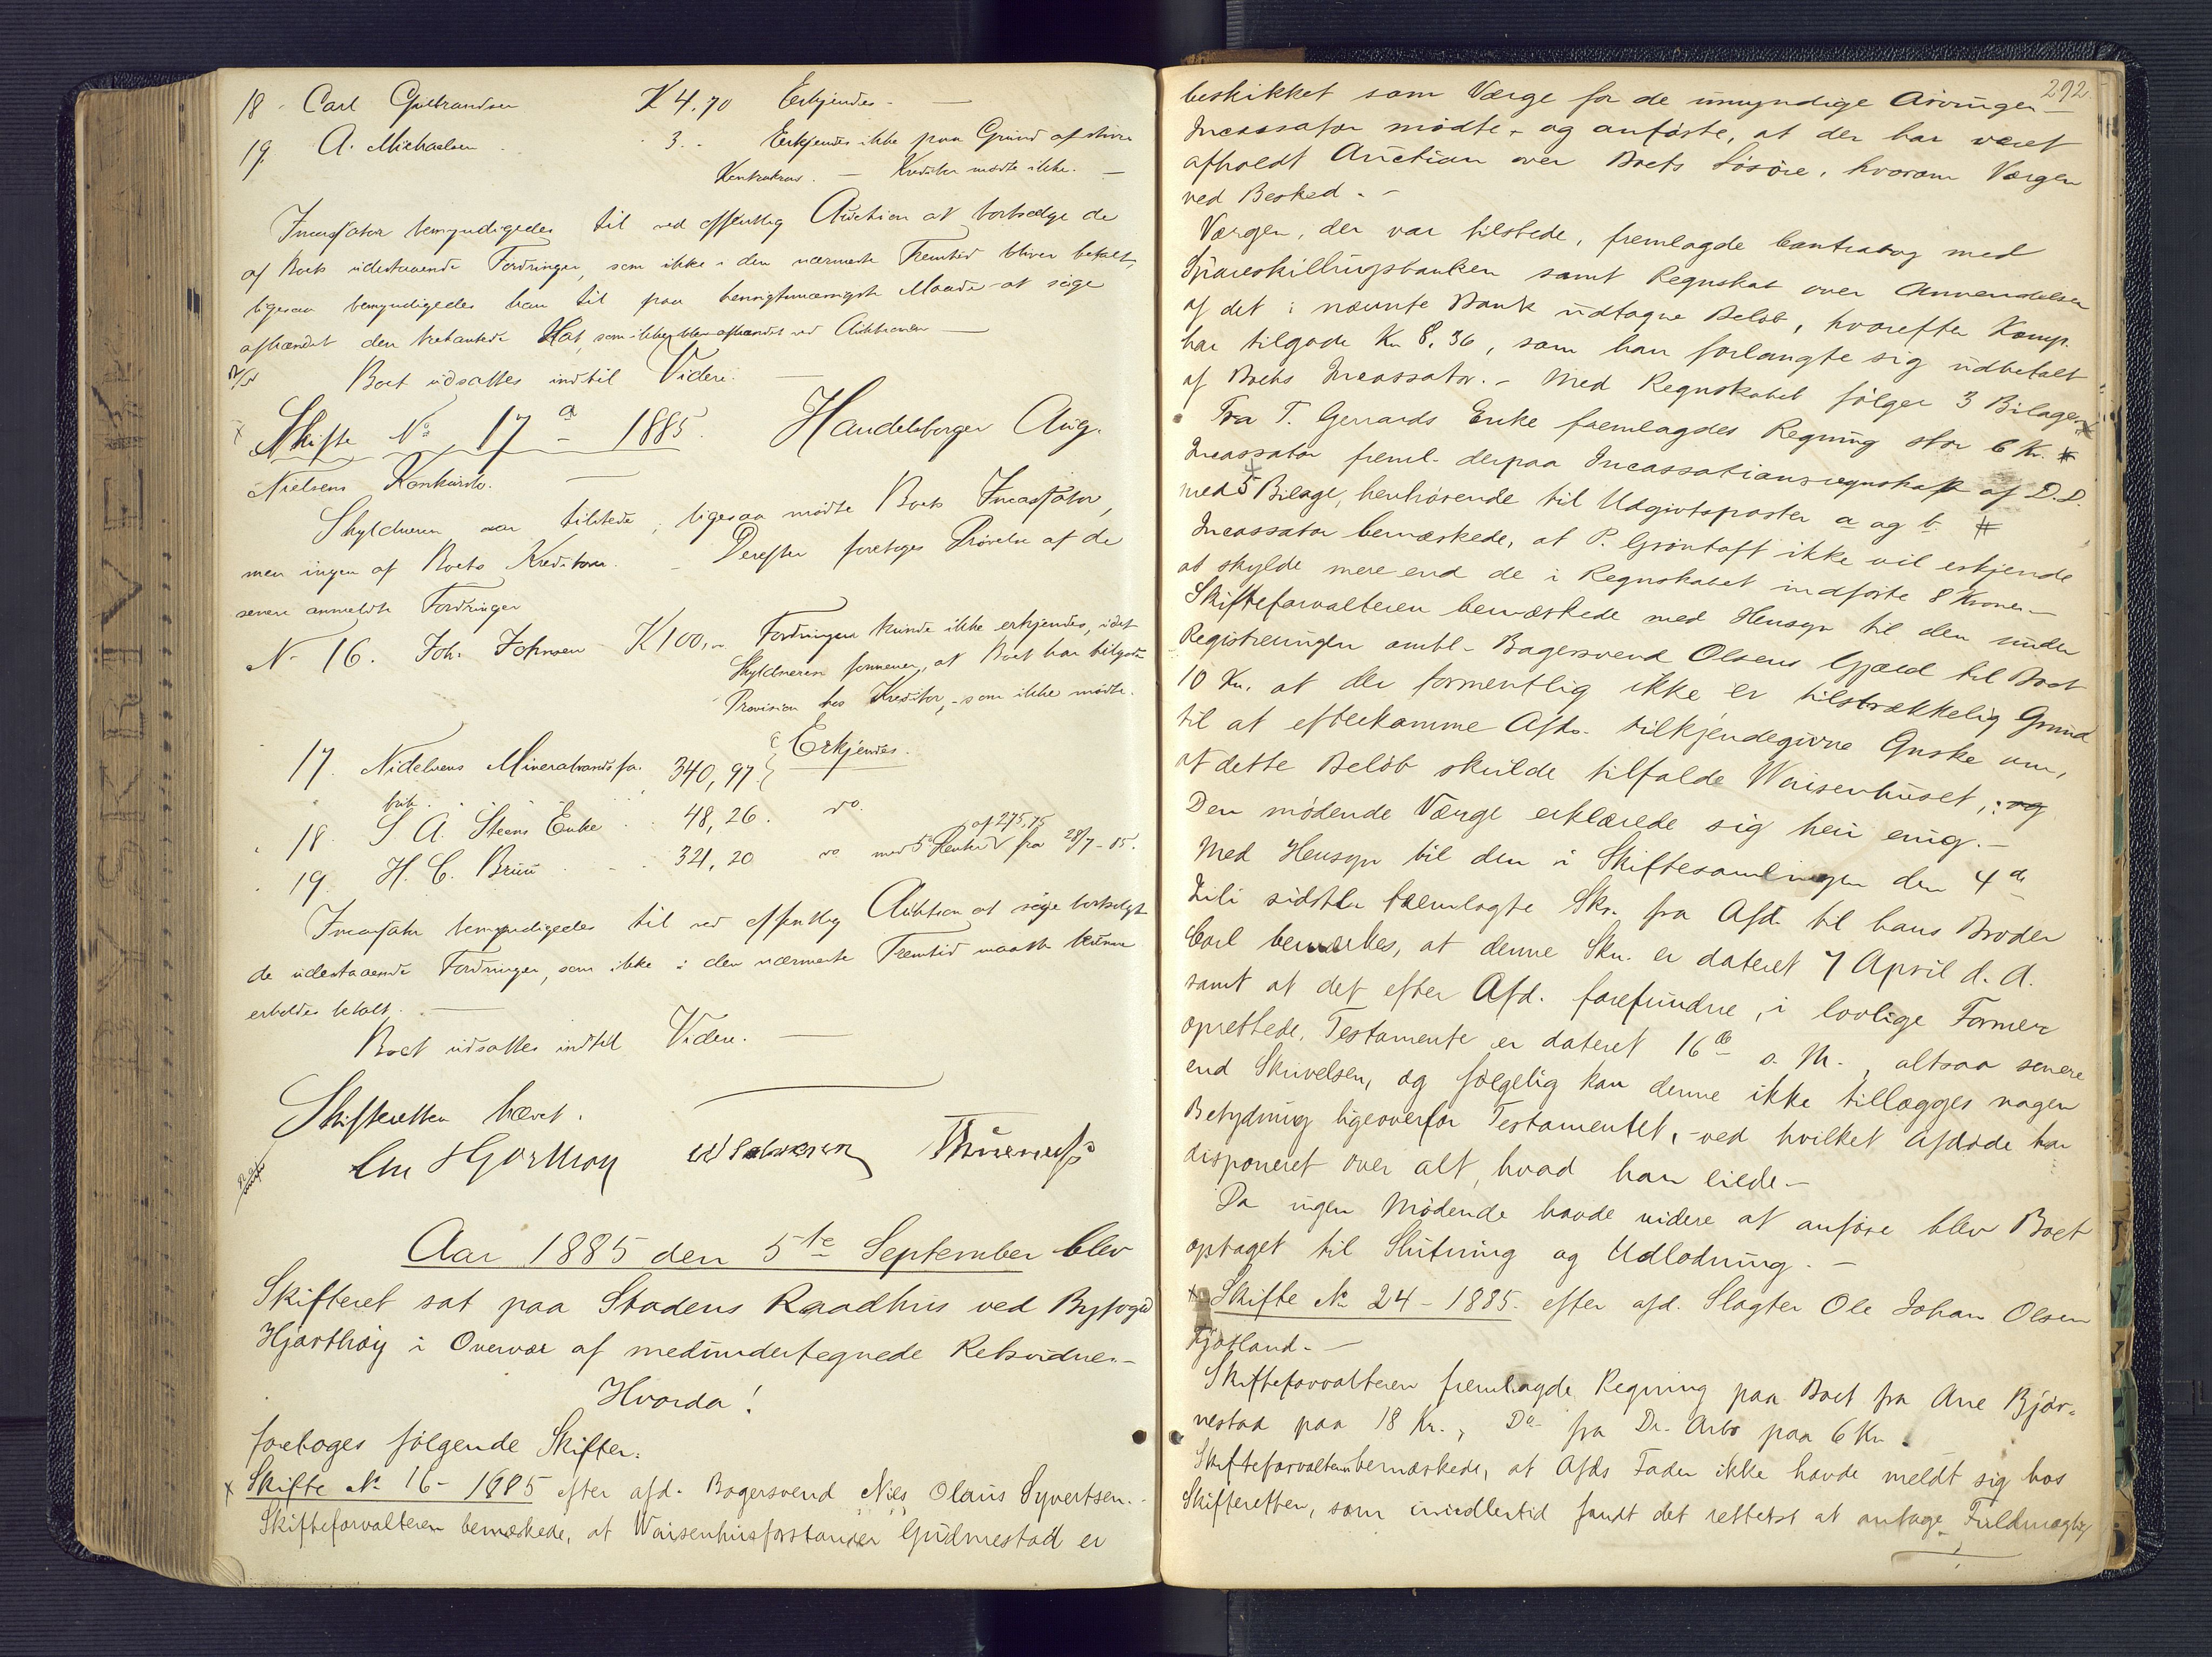 18 Carl Gulbrandsen K 4.70 Erkjendes. —
19. A. Michaelsen 3. - Erkjendes ikke paa Grund af
Kreditor mødte ikke. —
Incassator bemyndigedes til ved offentlig Auction at bortsælge de
af Boets udestaaende Fordringer, som ikke i den nærmeste Fremtid bliver betalt,
ligesaa bemyndigedes han til paa hensigtsmæssigste Maade at søge
afhændet den som ikke blev afhændet ved Auktionen —
Boet udsattes indtil Videre. —
Skifte No 17a - 1885. Handelsborger Aug.
Nielsens Konkursbo. —
Skyldneren var tilstede, ligesaa mødte Boets Incassator,
men ingen af Boets Kreditorer. — Derefter foretoges Prøvelse af de
senere anmeldte Fordringer
No 16. Joh. Johnsen K 100,- Fordringen kunde ikke erkjendes, idet
Skyldneren formener, at Boet har tilgode
Provision hos Kreditor, - som ikke mødte.
17. Nidelvens Mineralvandsfa- 340,97 } Erkjendes.
brik
18. S A. Steens Enke 48,26. do.
19. H. C. Bruu 321,20 do med 5% Renter af 275,75 fra 28/7 - 85.
Incassator bemyndigedes til ved offentlig Auktion at søge bortsolgt
de udestaaende Fordringer, som ikke i den nærmeste Fremtid maatte kunne
erholdes betalt. —
Boet udsattes indtil Videre. —
Skifteretten hævet.
Chr Hjorthøy
Aar 1885 den 5te September blev
Skifteret sat paa Stadens Raadhus ved Byfoged
Hjorthøy i Overvær af medundertegnede Retsvidner.-
Hvorda!
foretoges følgende Skifter:
x Skifte No 16 - 1885 efter afd. Bagersvend Nils Olaus Syvertsen. -
Skifteforvalteren bemærkede, at Waisenhusforstander Gudmestad er
292.
beskikket som Værge for de umyndige Arvinger —
Incassator mødte - og anførte, at der har været
afholdt Auction over Boets Løsøre, hvorom Værgen
ved Besked. -
Værgen, der var tilstede, fremlagde Contrabog med
Spareskillingsbanken samt Regnskab over Anvendelsen
af det i nævnte Bank udtagne Beløb, hvorefter Komp.
har tilgode Kr 8.36, som han forlangte sig udbetalt
af Boets Incassator. - Med Regnskabet følger 3 Bilager.
Fra T. Gerrards Enke fremlagdes Regning stor 6 Kr.
Incassator freml. derpaa Incassationsregnskab af D.D.
med 5 Bilage, henhørende til Udgiftsposter a og b. #
Incassator bemærkede, at P. Grøntoft ikke vil erkjende
at skylde mere end de i Regnskabet indførte 8 Kroner.-
Skifteforvalteren bemærkede med Hensyn til den under
Registreringen omtl. Bagersvend Olsens Gjæld til Boet
10 Kr. at der formentlig ikke er tilstrækkelig Grund
til at efterkomme Afds. tilkjendegivne Ønske om,
at dette Beløb skulde tilfalde Waisenhuset, : og
Den mødende Værge erklærede sig heri enig. -
Med Hensyn til den i Skiftesamlingen den 4de
Juli sidstl. fremlagte Skr. fra Afd. til hans Broder
Carl bemærkes, at denne Skr. er dateret 7 April d. A.
samt at det efter Afd. forefundne, i lovlige Former
oprettede, Testamente er dateret 16de s. M., altsaa senere
end Skrivelsen, og følgelig kan denne ikke tillægges nogen
Betydning ligeoverfor Testamentet, - ved hvilket Afdøde har
disponeret over alt, hvad han eiede -
Da ingen Mødende havde videre at anføre blev Boet
optaget til Slutning og Udlodning. -
x Skifte No 24 - 1885. efter afd. Slagter Ole Johan Olsen
Fjotland. -
Skifteforvalteren fremlagde Regning paa Boet fra Ane Bjør-
nestad paa 18 Kr., Do fra Dr. Arbo paa 6 Kr.
Skifteforvalteren bemærkede, at Afds Fader ikke havde meldt sig hos
Skifteretten, som imidlertid fandt det rettest at antage Fuldmægtig